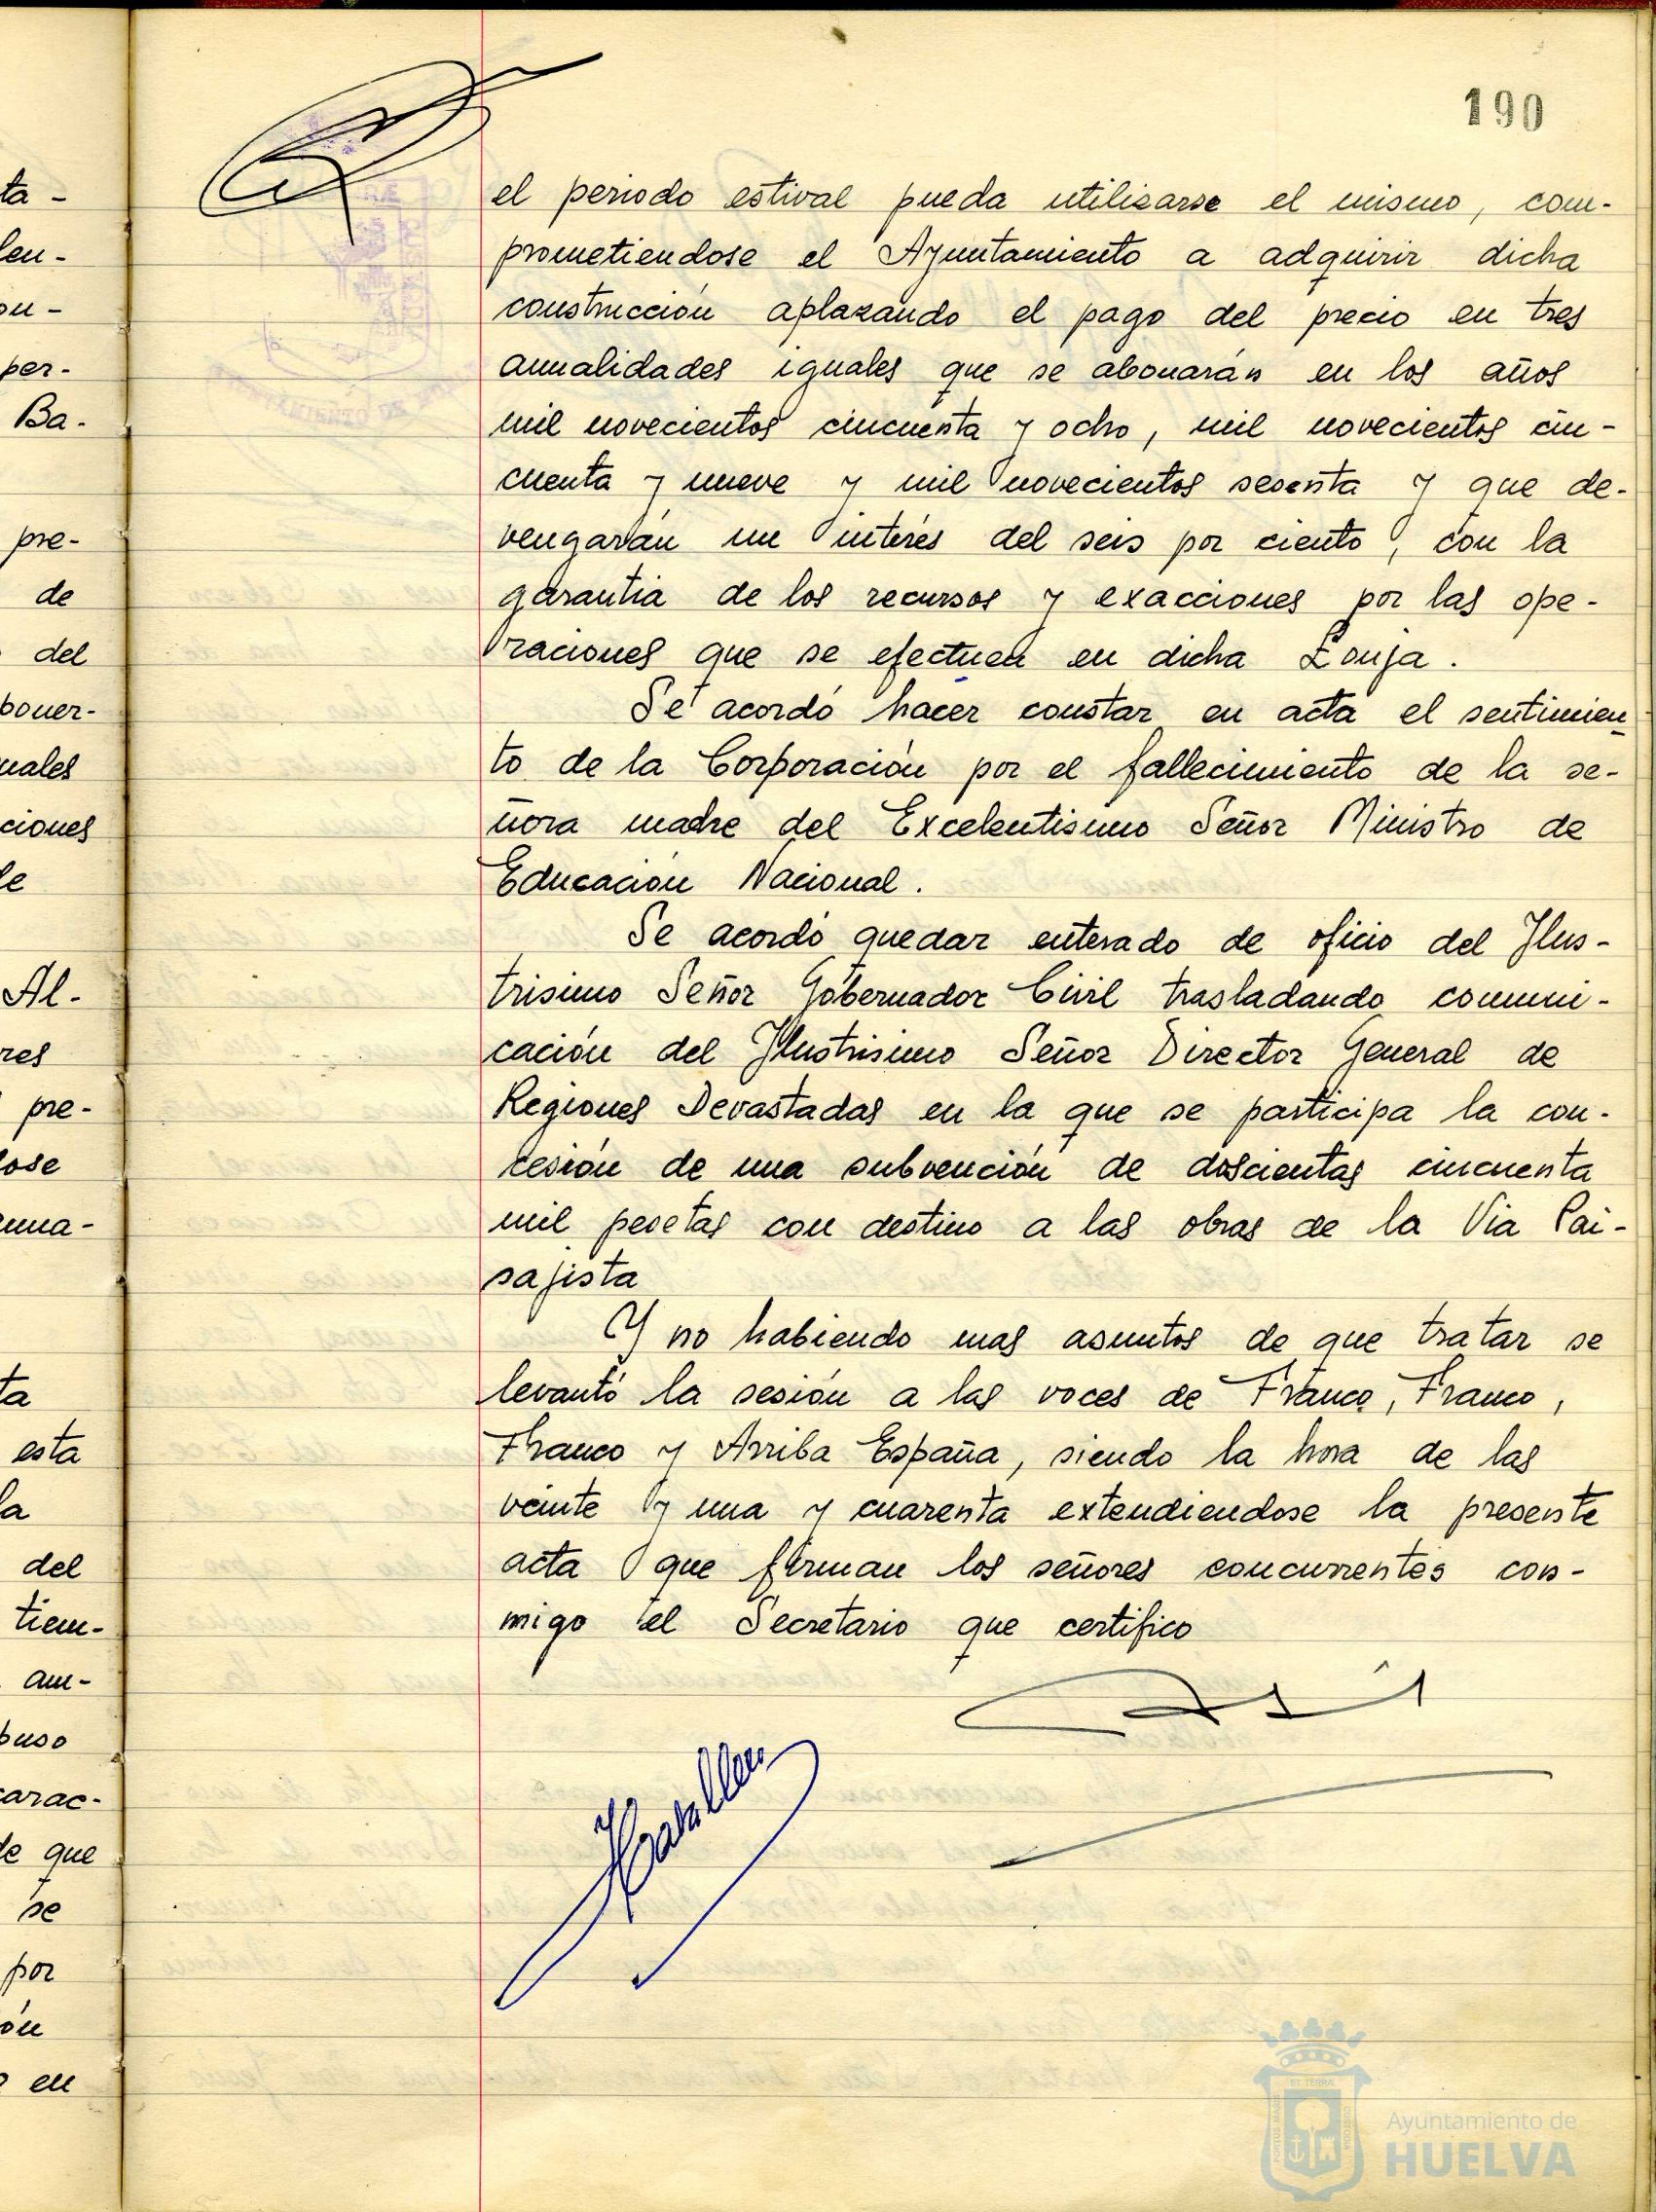 190
el periodo estival pueda utilizarse el mismo, com-
prometiendose el Ayuntamiento a adquirir dicha
construcción aplazando el pago del precio en tres
anualidades iguales que se abonarán en los años
mil novecientos cincuenta y ocho, mil novecientos cin-
cuenta y nueve y mil novecientos sesenta y que de-
vengarán un interés del seis por ciento, con la
garantia de los recursos y exacciones por las ope-
raciones que se efectuen en dicha Lonja.
Se acordó hacer constar en acta el sentimien
to de la Corporación por el fallecimiento de la se-
ñora madre del Excelentisimo Señor Ministro de
Educación Nacional.
Se acordó quedar enterado de oficio del Ilus-
trisimo Señor Gobernador Civil trasladando comuni-
cación del Ilustrisimo Señor Director General de
Regiones Devastadas en la que se participa la con-
cesión de una subvención de doscientas cincuenta
mil pesetas con destino a las obras de la Via Pai-
sajista
Y no habiendo mas asuntos de que tratar se
levantó la sesión a las voces de Franco, Franco,
Franco y Arriba España, siendo la hora de las
veinte y una y cuarenta extendiendose la presente
acta que firman los señores concurrentes con-
migo el Secretario que certifico
ta-
len-
on-
per-
Ba-
pre-
de
del
boner-
uales
ciones
le
Al-
res
pre-
dose
anua-
ta
esta
la
del
tiem-
am-
buso
carac-
de que
se
por
ón
en
Ayuntamiento de
HUELVA